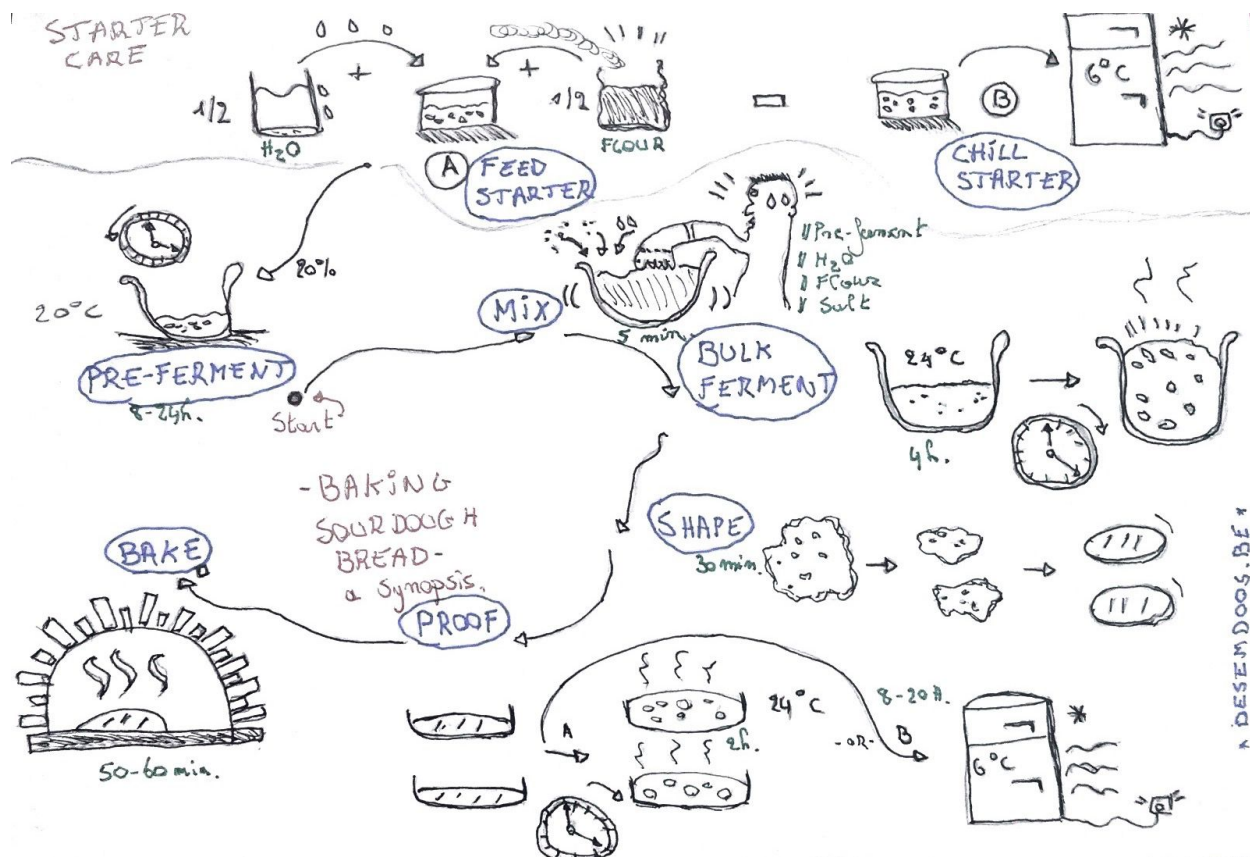 STARTER
CARE
+
+
1/2
H₂O
1/2
FLOUR
A
FEED
STARTER
B
6°C
CHILL
STARTER
20%
20°C
PRE-FERMENT
8-24h.
Start
MIX
5 min.
Pre-ferment
H₂O
Flour
Salt
BULK
FERMENT
24°C
4h.
SHAPE
30 min.
- BAKING
SOURDOUGH
BREAD -
a synopsis.
BAKE
50-60 min.
PROOF
A
24°C
2h.
8-20h.
-OR-
B
6°C
* DESEMDOOS.BE *